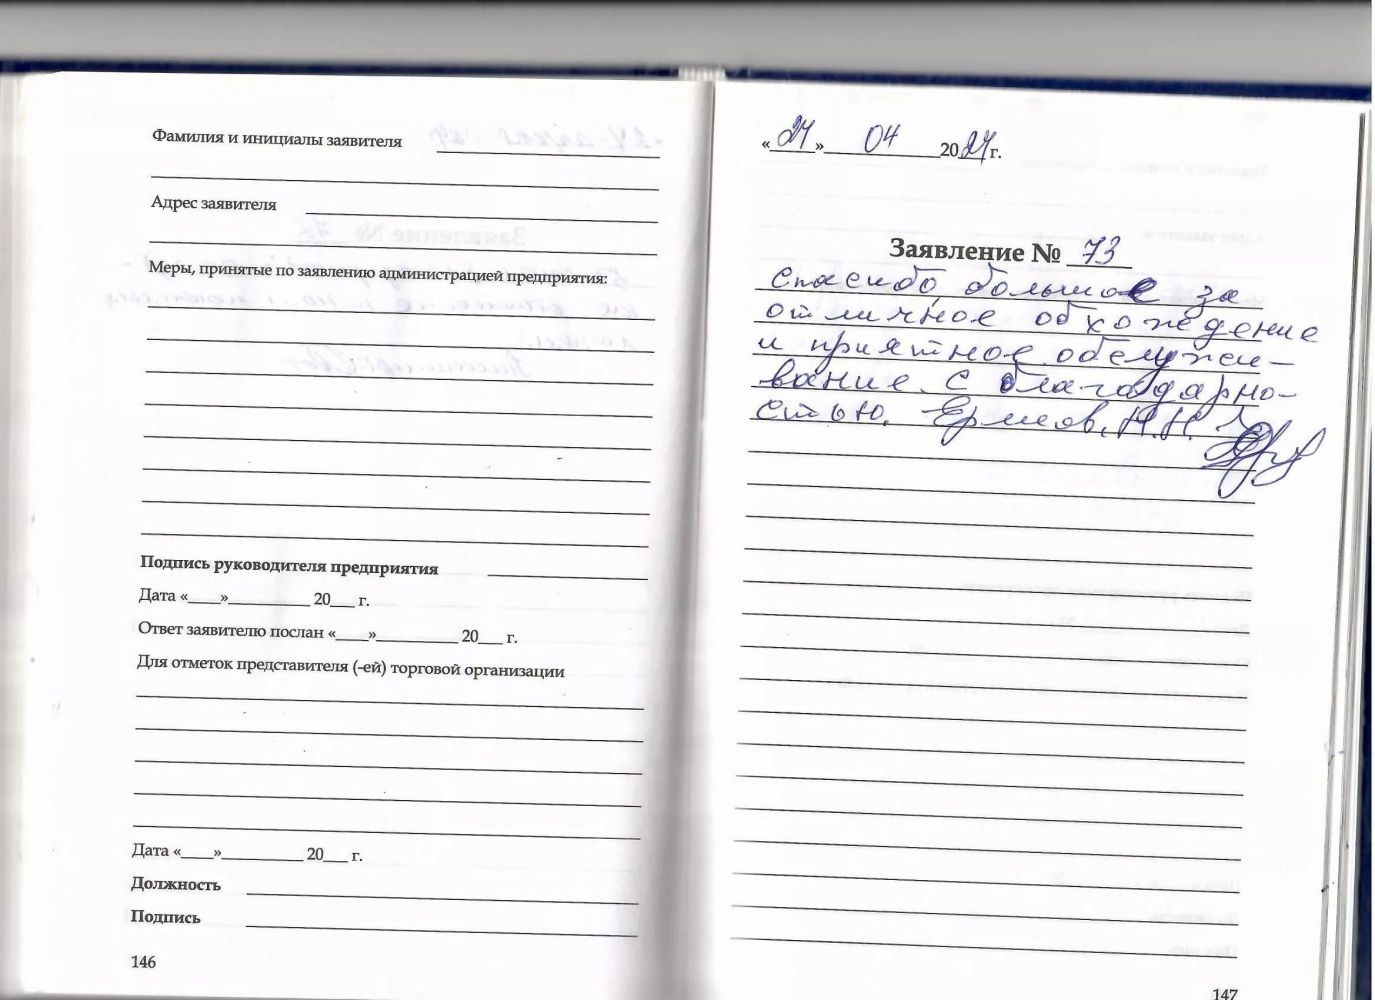 Фамилия и инициалы заявителя
Адрес заявителя
Меры, принятые по заявлению администрацией предприятия:
Подпись руководителя предприятия
Дата «____»__________ 20___ г.
Ответ заявителю послан «____»__________ 20___ г.
Для отметок представителя (-ей) торговой организации
Дата «____»__________ 20___ г.
Должность
Подпись
146
«24» 04 2024г.
Заявление № 73
Спасибо, большое за
отличное обхождение
и приятное обслужи-
вание. С благадарно-
стью. Ермов. Н.Н.
147